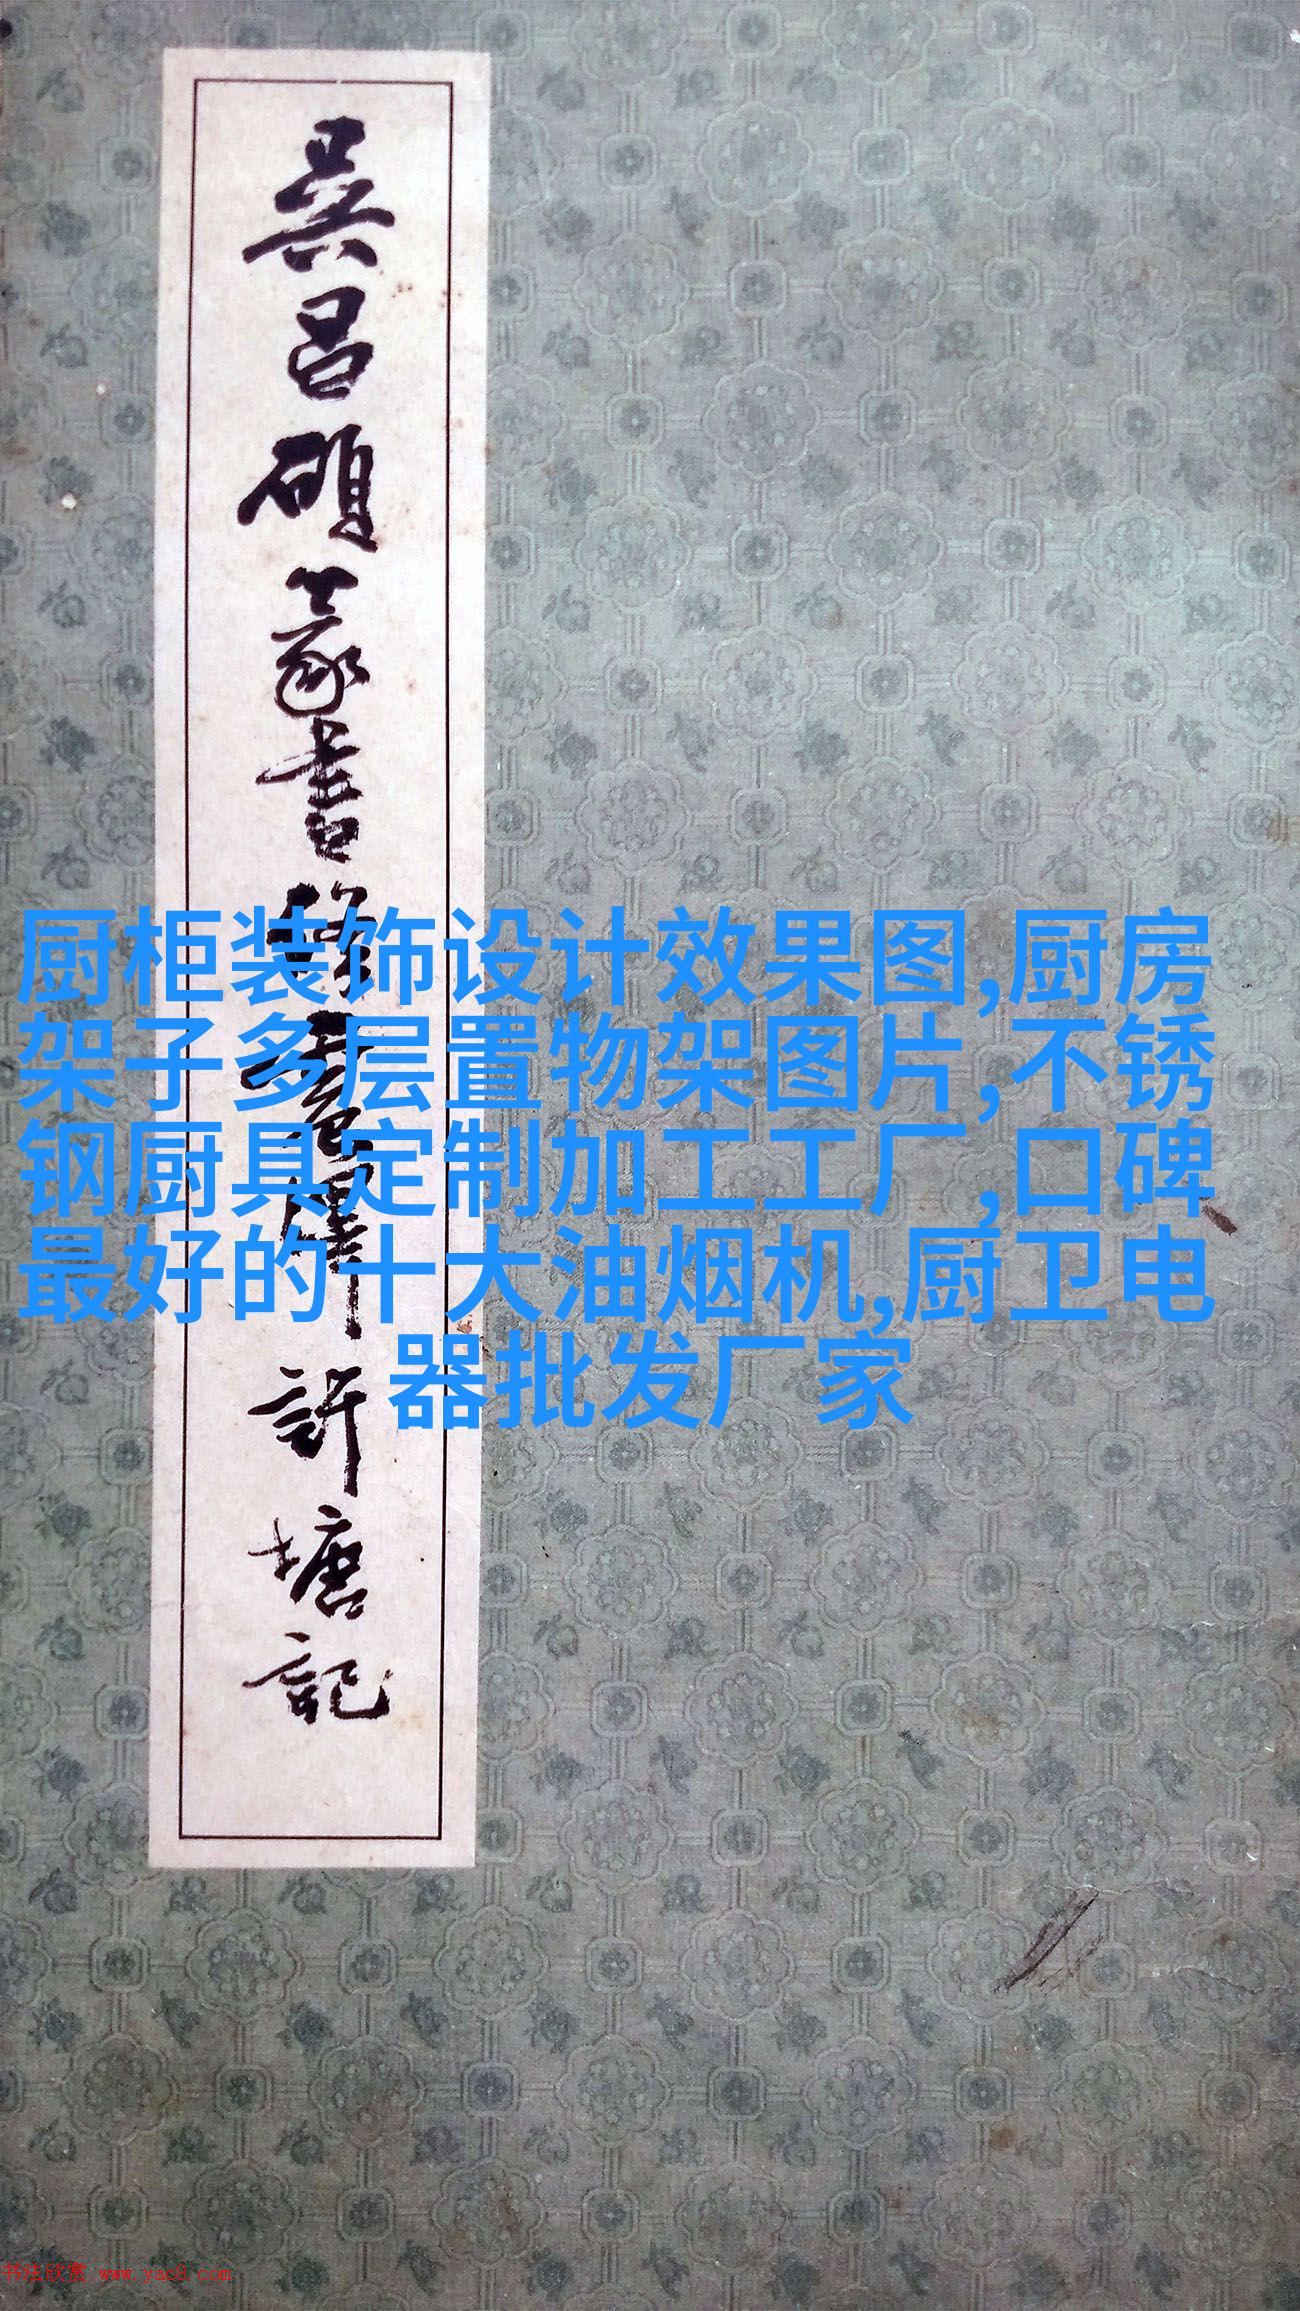 吳昌碩篆書修震澤許塘記
厨柜装饰设计效果图,厨房
架子多层置物架图片,不锈
钢厨具定制加工工厂,口碑
最好的十大油烟机,厨卫电
器批发厂家
书法欣赏 www.yac8.com